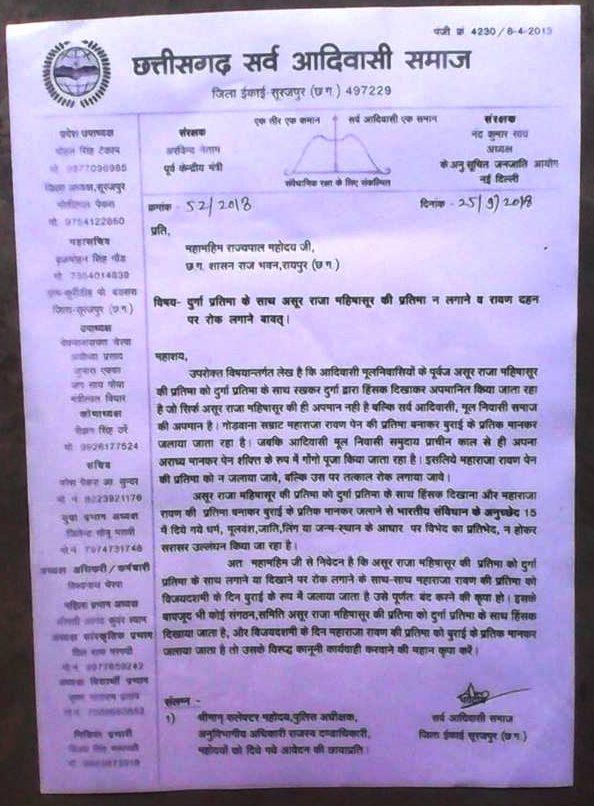 पंजी क्रं 4230/8-4-2013
छत्तीसगढ़ सर्व आदिवासी समाज
जिला ईकाई-सूरजपुर (छ.ग.) 497229
एक तीर एक कमान सर्व आदिवासी एक समान
संरक्षक
अरविन्द नेताम
पूर्व केन्द्रीय मंत्री
संवैधानिक रक्षा के लिए संकल्पित
संरक्षक
नंद कुमार साय
अध्यक्ष
के.अनु सूचित जनजाति आयोग
नई दिल्ली
प्रदेश उपाध्यक्ष
मोहन सिंह टेकाम
जिला अध्यक्ष,सूरजपुर
मो. 9754122850
महासचिव
जिला-सूरजपुर (छ.ग)
उपाध्यक्ष
कोषाध्यक्ष
मो. 9926177524
सचिव
युवा प्रभाग अध्यक्ष
मो.नं 7974731748
अध्यक्ष अधिकारी/कर्मचारी
महिला प्रभाग अध्यक्ष
अध्यक्ष सांस्कृतिक प्रभाग
अध्यक्ष विद्यार्थी प्रभाग
मिडिया प्रभारी
क्रमांक - 52/2018 दिनांक - 25/9/2018
प्रति,
महामहिम राज्यपाल महोदय जी,
छ.ग. शासन राज भवन,रायपुर (छ.ग.)
विषय- दुर्गा प्रतिमा के साथ असूर राजा महिषासूर की प्रतिमा न लगाने व रावण दहन
पर रोक लगाने बावत्।
महाशय,
उपरोक्त विषयान्तर्गत लेख है कि आदिवासी मूलनिवासियों के पूर्वज असूर राजा महिषासूर
की प्रतिमा को दुर्गा प्रतिमा के साथ रखकर दुर्गा द्वारा हिंसक दिखाकर अपमानित किया जाता रहा
है जो सिर्फ असूर राजा महिषासूर की ही अपमान नही है बल्कि सर्व आदिवासी, मूल निवासी समाज
की अपमान है। गोडवाना सम्राट महाराजा रावण पेन की प्रतिमा बनाकर बुराई के प्रतिक मानकर
जलाया जाता रहा है। जबकि आदिवासी मूल निवासी समुदाय प्राचीन काल से ही अपना
अराध्य मानकर पेन शक्ति के रूप में गोंगो पूजा किया जाता रहा है। इसलिये महाराजा रावण पेन
की प्रतिमा को न जलाया जावे, बल्कि उस पर तत्काल रोक लगाया जावे।
असूर राजा महिषासूर की प्रतिमा को दुर्गा प्रतिमा के साथ हिंसक दिखाना और महाराजा
रावण की प्रतिमा बनाकर बुराई के प्रतिक मानकर जलाने से भारतीय संविधान के अनुच्छेद 15
में दिये गये धर्म, मूलवंश,जाति,लिंग या जन्म-स्थान के आधार पर विभेद का प्रतिभेद, न होकर
सरासर उल्लंघन किया जा रहा है।
अत महामहिम जी से निवेदन है कि असूर राजा महिषासूर की प्रतिमा को दुर्गा
प्रतिमा के साथ लगाने या दिखाने पर रोक लगाने के साथ-साथ महाराजा रावण की प्रतिमा को
विजयदशमी के दिन बुराई के रूप में जलाया जाता है उसे पूर्णतः बंद करने की कृपा हो। इसके
बावजूद भी कोई संगठन,समिति असूर राजा महिषासूर की प्रतिमा को दुर्गा प्रतिमा के साथ हिंसक
दिखाया जाता है, और विजयदशमी के दिन महाराजा रावण की प्रतिमा को बुराई के प्रतिक मानकर
जलाया जाता है तो उसके विरुद्ध कानूनी कार्यवाही करवाने की महान कृपा करें।
संलग्न -
1) श्रीमान् कलेक्टर महोदय,पुलिस अधीक्षक,
अनुविभागीय अधिकारी राजस्व दण्डाधिकारी,
महोदयों को दिये गये आवेदन की छायाप्रति।
सर्व आदिवासी समाज
जिला ईकाई सूरजपुर (छ.ग.)